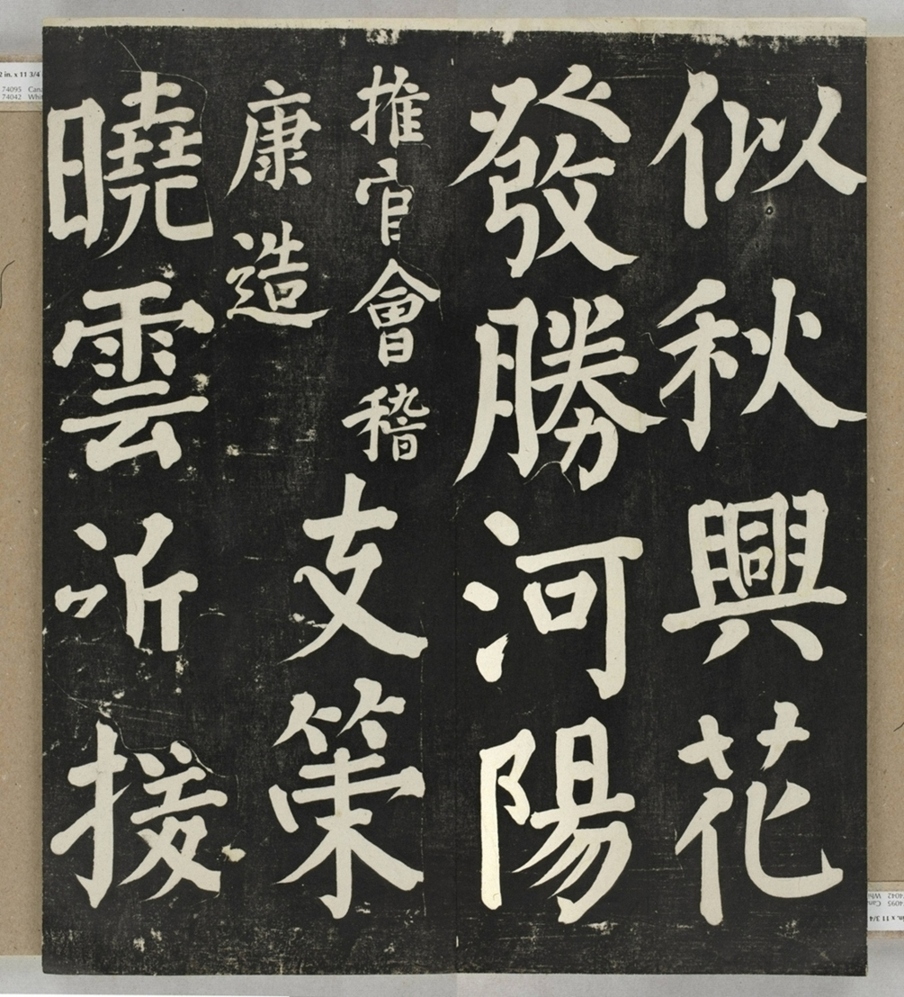 似秋興花
發勝河陽
推官會稽
康造
支策
曉雲近援
in. x 11 3/4
74095
74042
74042
74095
in. x 11 3/4